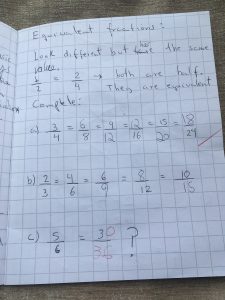 Equivalent fractions:
Look different but have the same
value.
1/2 = 2/4 → both are half.
They are equivalent
Complete:
a) 3/4 = 6/8 = 9/12 = 12/16 = 15/20 = 18/24
b) 2/3 = 4/6 = 6/9 = 8/12 = 10/15
c) 5/6 = 30/36 ?